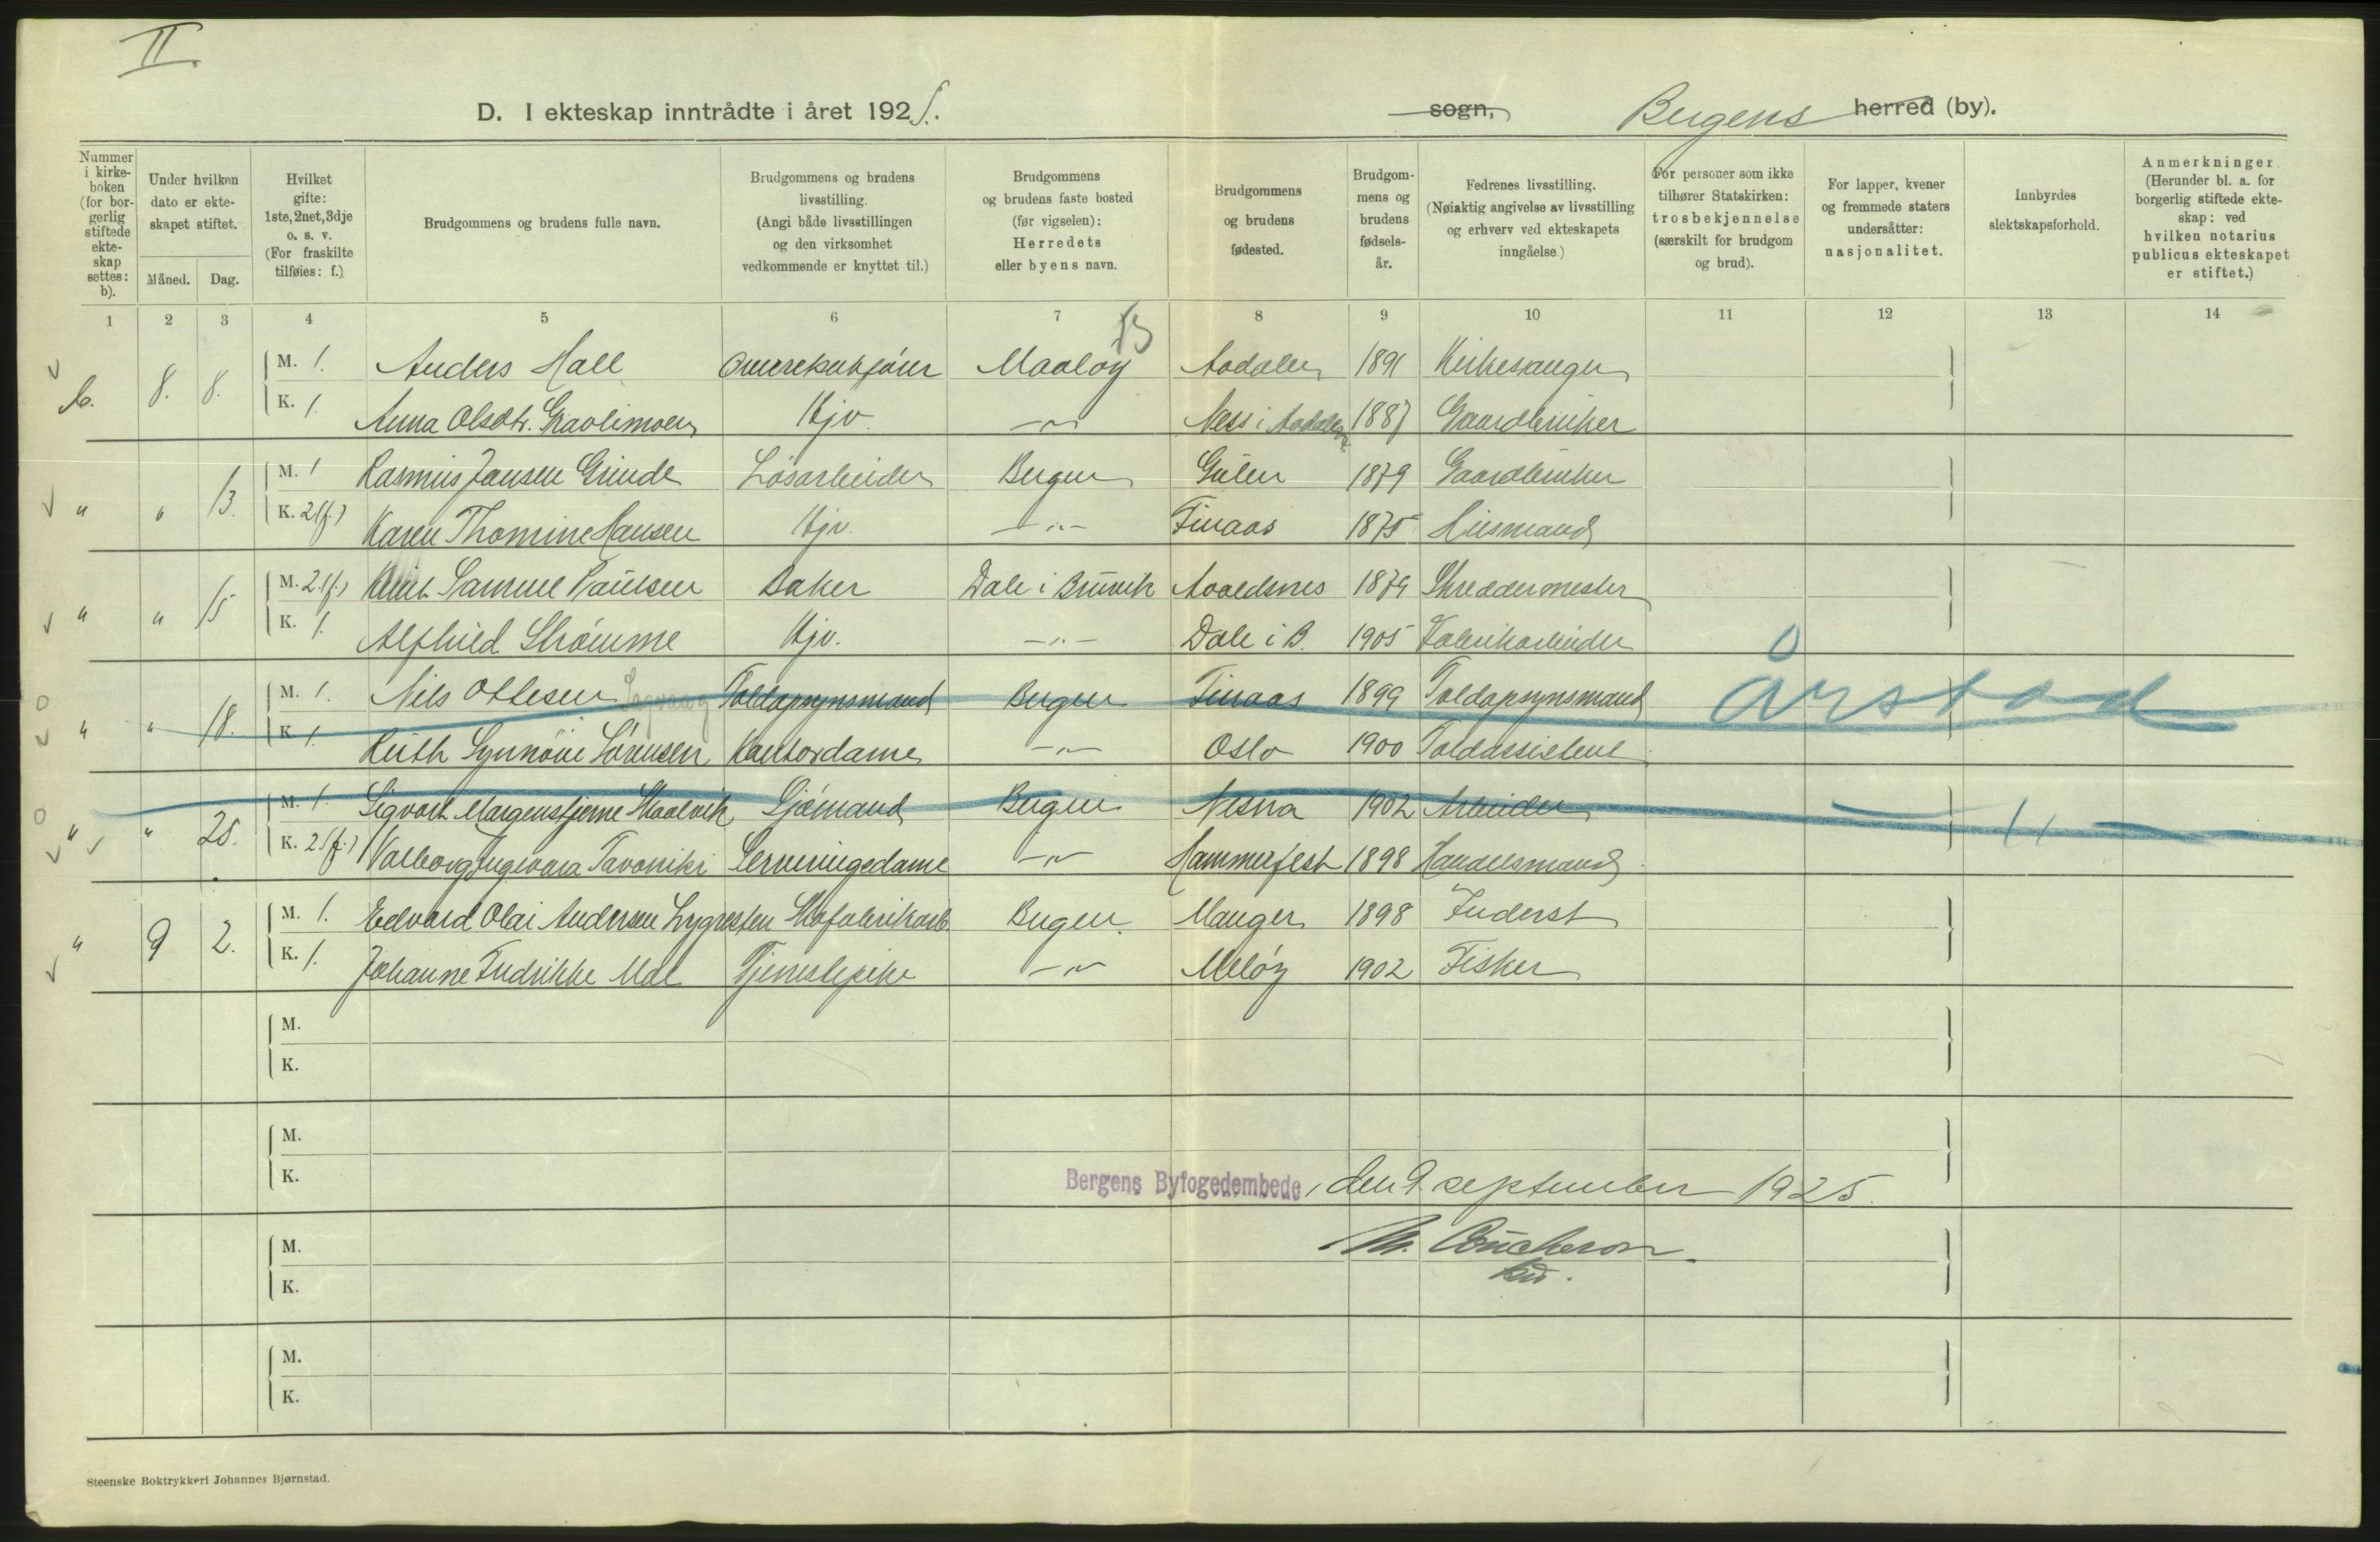 II.
D. I ekteskap inntrådte i året 1925. sogn, Bergens herred (by).
Nummer i kirke-boken (for bor-gerlig stiftede ekte-skap settes: b).
Under hvilken dato er ekte-skapet stiftet.
Måned. Dag.
Hvilket gifte: 1ste, 2net, 3dje o. s. v. (For fraskilte tilføies: f.)
Brudgommens og brudens fulle navn.
Brudgommens og brudens livsstilling. (Angi både livsstillingen og den virksomhet vedkommende er knyttet til.)
Brudgommens og brudens faste bosted (før vigselen): Herredets eller byens navn.
Brudgommens og brudens fødested.
Brudgom-mens og brudens fødsels-år.
Fedrenes livsstilling. (Nøiaktig angivelse av livsstilling og erhverv ved ekteskapets inngåelse.)
For personer som ikke tilhører Statskirken: trosbekjennelse (særskilt for brudgom og brud).
For lapper, kvener og fremmede staters undersåtter: nasjonalitet.
Innbyrdes slektskapsforhold.
Anmerkninger. (Herunder bl. a. for borgerlig stiftede ekte-skap: ved hvilken notarius publicus ekteskapet er stiftet.)
1 2 3 4 5 6 7 8 9 10 11 12 13 14
B
b. 8. 8. M. 1. Anders Hall Maaløy Aadalen 1891 Kirkesanger
K. 1. Anna Olsdtr. Gravlimoen Hjv. -"- Ness i Aadalen 1887 Gaardbruker
" " 13. M. 1 Rasmus Jansen Grinde Løsarbeider Bergen Gulen 1879 Gaardbruker
K. 2(f.) Karen Thomine Hansen Hjv. -"- Finaas 1875 Husmand
" " 15 M. 2.(f.) Samuel Paulsen Baker Dale i Bruvik Avaldsnes 1879 Skreddermester
K. 1. Alfhild Strømme Hjv. -"- Dale i B. 1905 Fabrikarbeider
" " 18. M. 1. Nils Ottesen Toldopsynsmand Bergen Finaas 1899 Toldopsynsmand Årstad
K. 1. Ruth Synnøve Sørensen Kontordame -"- Oslo 1900 Toldassistent
" " 25. M. 1. Sigvart Morgenstjerne Skaalvik Sjømand Bergen Nesna 1902 Arbeider - 11 -
K. 2(f.) Valborg Ingevara Tavoniki Serveringsdame -"- Hammerfest 1898 Handelsmand
" 9 2. M. 1. Edvard Olai Andersen Lygresten Skofabrikarb. Bergen. Manger 1898 Inderst
K. 1. Johanne Fredrikke Mol Tjenestepike -"- Meløy 1902 Fisker
M.
K.
M.
K.
Bergens Byfogedembede, den 9. september 1925.
M.
K.
M.
K.
Steenske Boktrykkeri Johannes Bjørnstad.